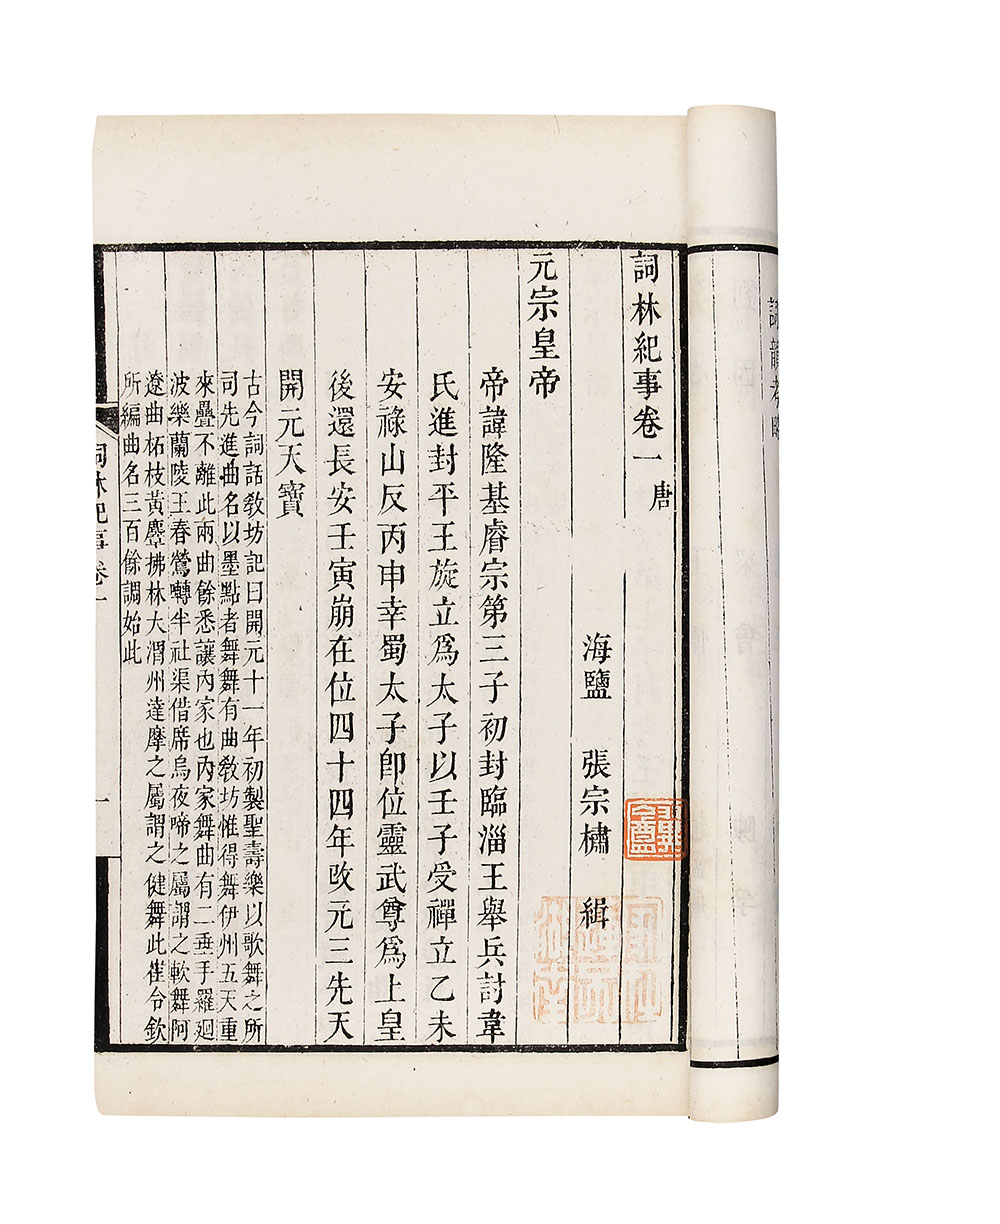 詞林紀事卷一
唐
海鹽 張宗橚 緝
元宗皇帝
帝諱隆基睿宗第三子初封臨淄王舉兵討韋
氏進封平王旋立爲太子以壬子受禪立乙未
安祿山反丙申幸蜀太子卽位靈武尊爲上皇
後還長安壬寅崩在位四十四年改元三先天
開元天寶
古今詞話敎坊記曰開元十一年初製聖壽樂以歌舞之所
司先進曲名以墨點者舞舞有曲敎坊惟得舞伊州五天重
來疊不離此兩曲餘悉讓內家也內家舞曲有二垂手羅廻
波樂蘭陵王春鶯囀半社渠借席烏夜啼之屬謂之軟舞阿
遼曲柘枝黃麞拂林大渭州達摩之屬謂之健舞此崔令欽
所編曲名三百餘調始此
詞林紀事卷一
一